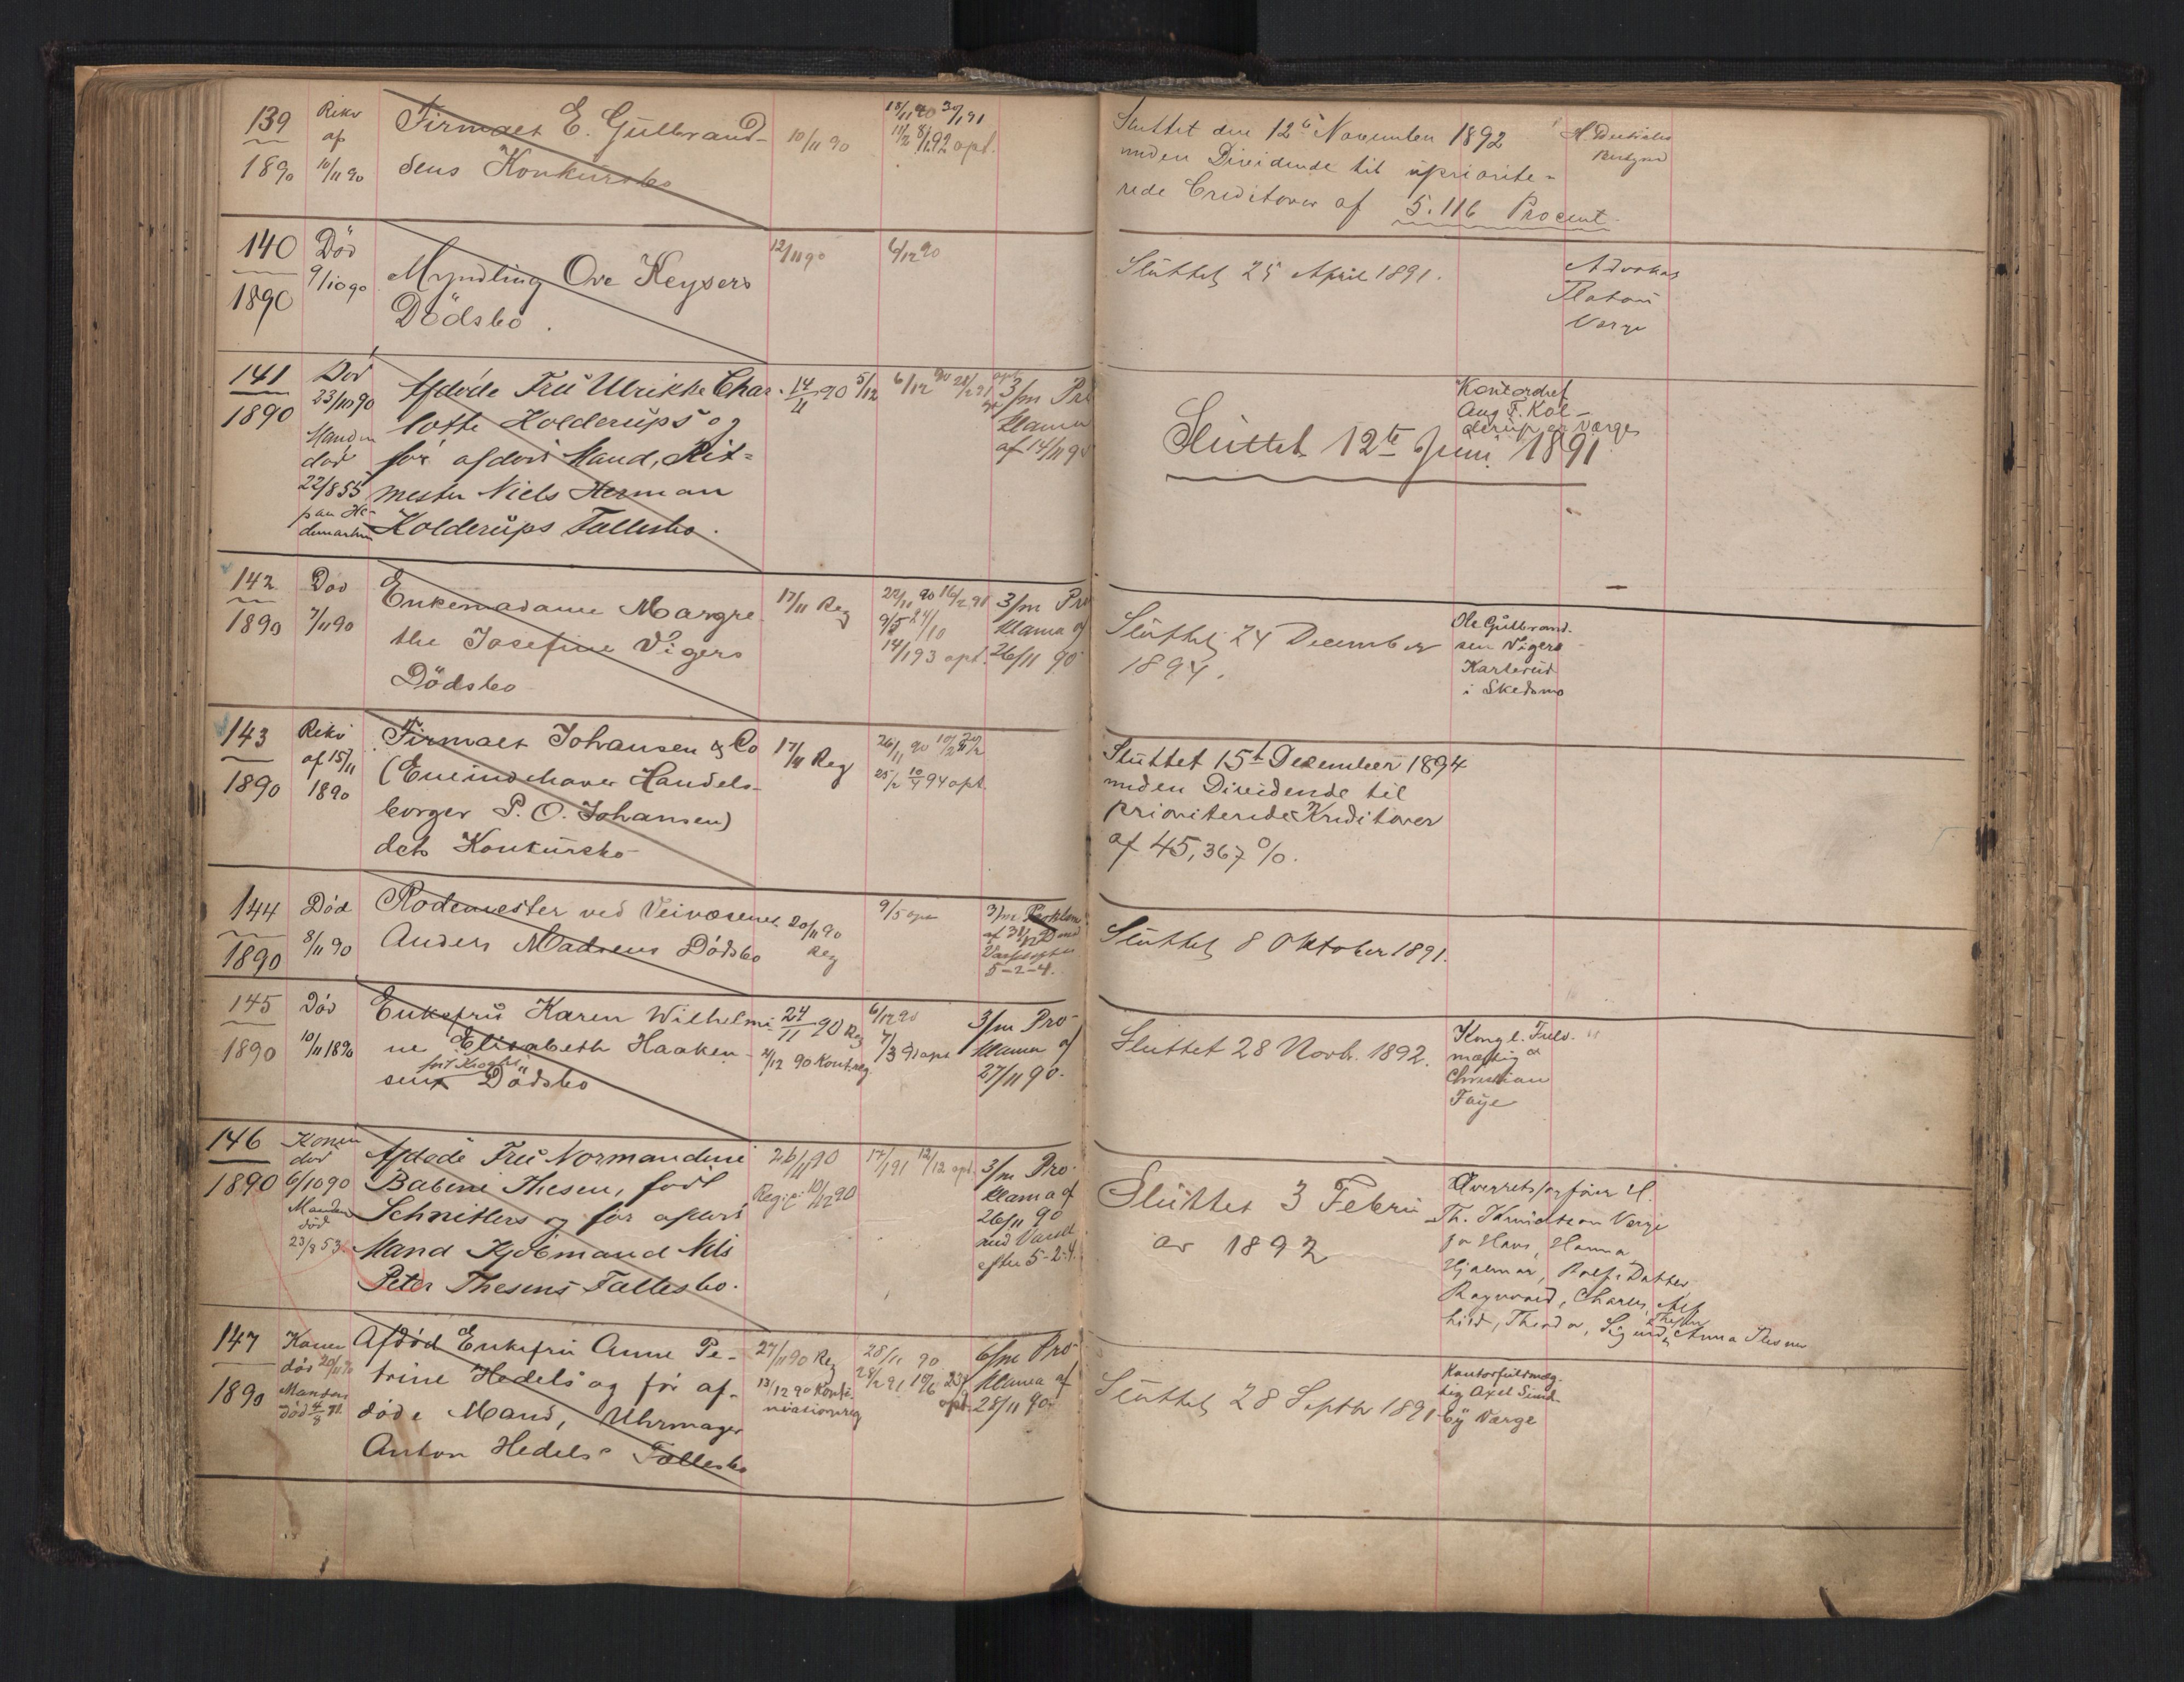 139
1890
Rekv
af
10/11 90
Firmaet E. Gulbrand-
sens Konkursbo
10/11 90
18/11 90
8/1 92 opt.
Sluttet den 12te November 1892
uden Dividende til upriorite-
rede Creditorer af 5.116 Procent.
140
1890
Död
9/10 90
Myndling Ove Keysers
Dödsbo.
12/11 90
6/12 90
Sluttet 25 April 1891.
Advokat
Platou
Verge
141
1890
Död
23/10 90
Manden
död
22/8 55
paa He-
demarken
Afdöde Fru Ulrikke Char-
lotte Kolderups og
för afdöde Mand, Rit-
mester Niels Herman
Kolderups Fællesbo.
14/11 90 5/12
6/12 90
3/m Pro
klama
af 14/11 90
Sluttet 12te Juni 1891
Kontorchef
Aug F. Kol-
derup er Værge
142
1890
Död
7/11 90
Enkemadame Margre
the Josefine Vigers
Dödsbo
17/11 Reg
22/11 90 16/2 91
14/1 93 opt.
3/m Pro
klama af
26/11 90
Sluttet 24 December
1894.
Ole Gulbrand-
sen Vigers
Karlsrud
i Skedsmo
143
1890
Rekv
af 15/11
1890
Firmaet Johansen & Co
(Eneindehaver Handels-
borger P. O. Johansen)
dets Konkursbo
17/11 Reg
26/11 90
25/2 10/4 94 opt.
Sluttet 15de December 1894
uden Dividende til
prioriterede Kreditorer
af 45,367 %.
144
1890
Död
8/11 90
Rodemester ved Veivæsenet
Anders Madsens Dödsbo
20/11 90
Reg
9/5 opt
3/m Proklama
5-2-4.
Sluttet 8 Oktober 1891.
145
1890
Död
10/11 1890
Enkefru Karen Wilhelmi-
ne Elisabeth Haaken-
sens Dödsbo
24/11 90 Reg
4/12 90 Kont.reg.
6/12 90
7/3 91 opt
3/m Pro-
klama af
27/11 90.
Sluttet 28 Novb. 1892.
Kongl. Fuld-
mægtig
Christian
Faye
146
1890
Konen
död
6/10 90
Manden
död
23/8 53
Afdöde Fru Normandine
Babine Thesen, född
Schnitlers og för afdöde
Mand Kjöbmand Nils
Peter Thesens Fællesbo.
26/11 90
Reg: 10/12 90
17/1 91 12/12 opt.
3/m Pro-
klama af
26/11 90
med Varsel
efter 5-2-4.
Sluttet 3 Febru
ar 1892
Overretssagförer H.
Th. Knudtzon Verge
for Hans, Hanna
Hjalmar, Rolf, Datter
Ragnvald, Charles, Alf
hild, Theodor, Sigurd, Anna Thesen
147
1890
Konen
död 20/11 90
Manden
död 4/8 71
Afdöd Enkefru Anne Pe-
trine Hedels og för af-
döde Mand, Uhrmager
Anton Hedels Fællesbo
27/11 90 Reg
13/12 90 Konti-
nuationsreg
28/11 90
28/2 91 19/6
opt.
6/m Pro-
klama af
28/11 90.
Sluttet 28 Septbr 1891
Kontorfuldmæg-
tig Axel Sund-
by Værge